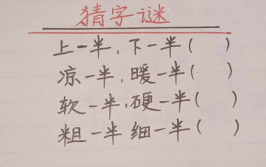 猜字谜
上一半,下一半( )
凉一半,暖一半( )
软一半,硬一半( )
粗一半 细一半( )